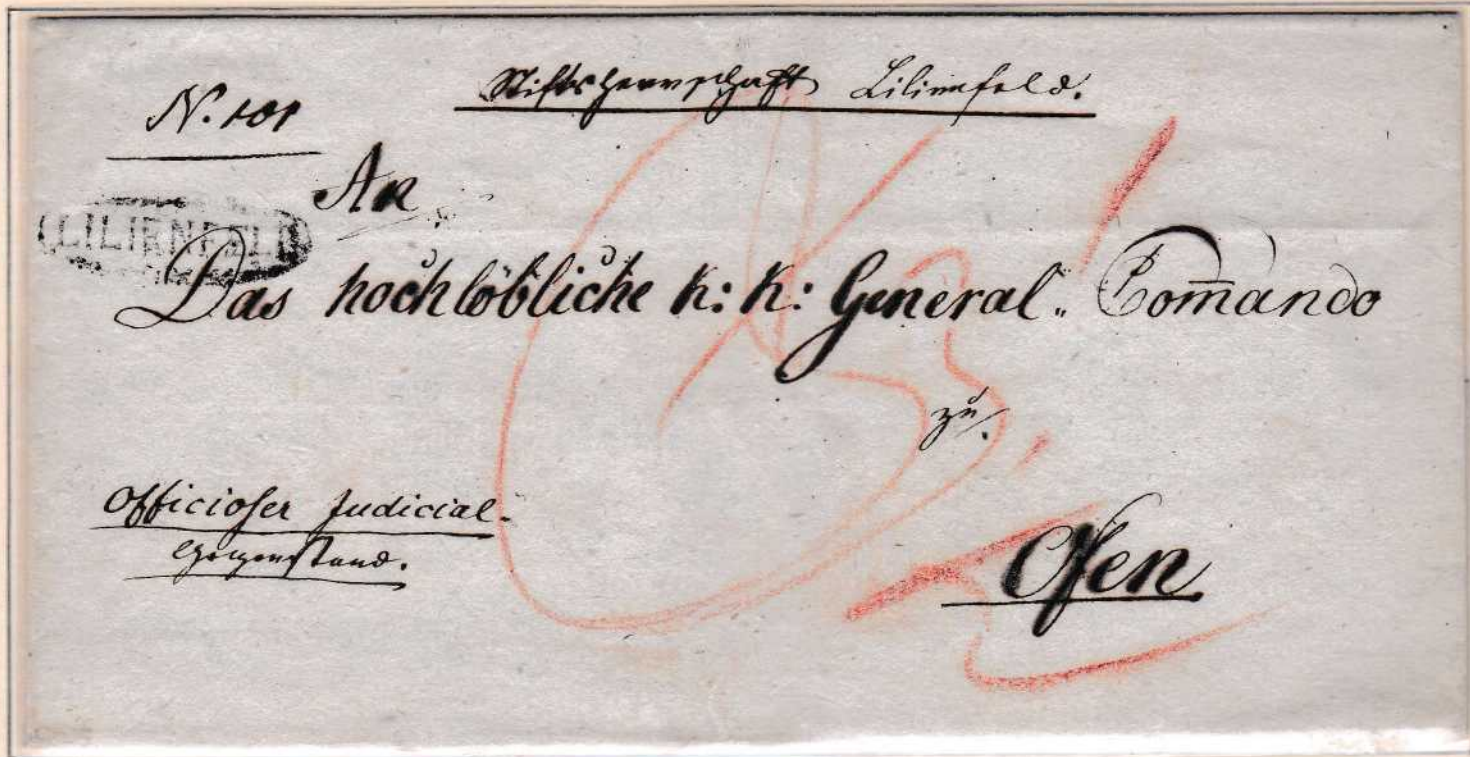 Stiftsherrschaft Lilienfeld.
N. 101
LILIENFELD
An
Das hochlöbliche k: k: General- Com̄ando
zu
Ofen
Officioser Judicial-
Gegenstand.